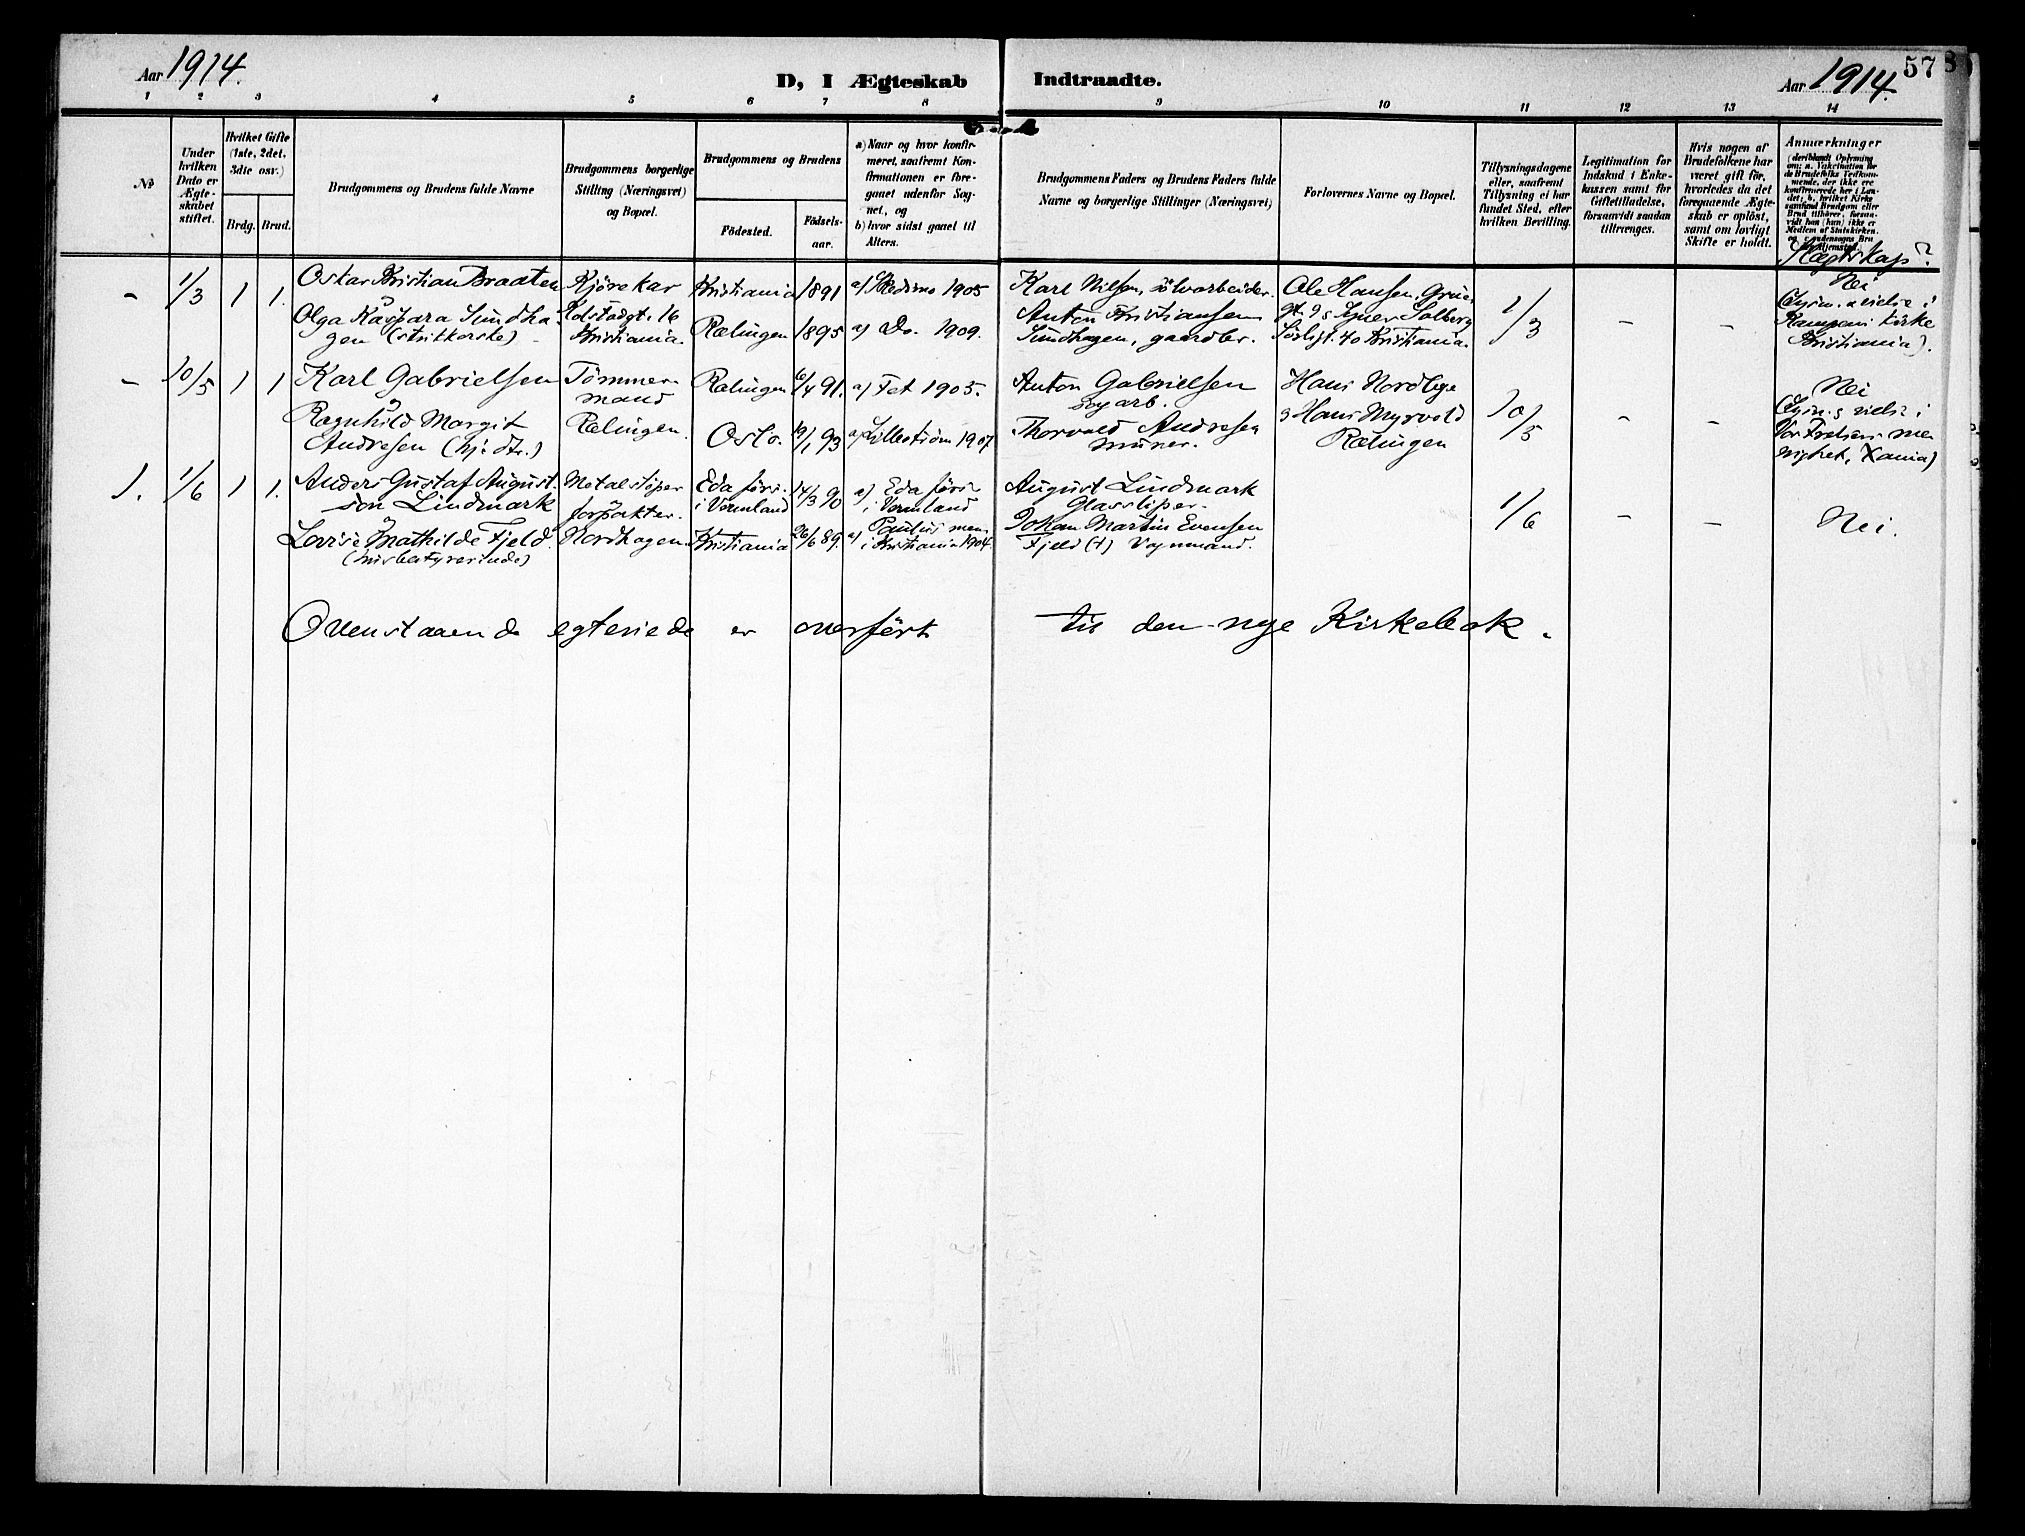 Aar 1914.
D, I Ægteskab Indtraadte.
Aar 1914.
57
8
1 2 3 4 5 6 7 8 9 10 11 12 13 14
No
Under hvilken Dato er Ægteskabet stiftet.
Hvilket Gifte (1ste, 2det, 3die osv.)
Brdg. Brud.
Brudgommens og Brudens fulde Navne
Brudgommens borgerlige Stilling (Næringsvei) og Bopæl.
Brudgommens og Brudens
Födested. Födsels-aar.
a) Naar og hvor konfirmeret, saafremt Konfirmationen er foregaaet udenfor Sognet, og
b) hvor sidst gaaet til Alters.
Brudgommens Faders og Brudens Faders fulde Navne og borgerlige Stillinger (Næringsvei)
Forlovernes Navne og Bopæl.
Tillysningsdagene eller, saafremt Tillysning ei har fundet Sted, efter hvilken Bevilling.
Legitimation for Indskud i Enkekassen samt for Giftetilladelse, forsaavidt saadan tiltrænges.
Hvis nogen af Brudefolkene har været gift før, hvorledes da det foregaaende Ægteskab er opløst, samt om lovligt Skifte er holdt.
Anmærkninger
Slægtskap?
- 1/3 1 1. Oskar Kristian Braaten Kjørekar Kristiania 1891 1905 Karl Nilsen, sølvarbeider. Ole Hansen, Grue- 1/3 - - Nei
Olga Kaspara Sundha- Kolstadgt. 16 Rælingen 1895 a) Do. 1909. Anton Kristiansen gt. 9 Solberg
gen (strikkerske) Kristiania. Sundhagen, gaardbr. 40 Kristiania. Kampens Kirke
Kristiania).
- 10/5 1 1 Karl Gabrielsen Tömmer- Rælingen 6/4 91. a) Fet 1905. Anton Gabrielsen Hans Nordlge 10/5 - - Nei
mand sagarb. & Hans Myrvold
Ragnhild Margit Rælingen. Oslo. 19/1 93 a) Lilleström 1907 Thorvald Andresen Rælingen Vor Frelsers me-
Andresen (hj. dtr.) murer. nighet, Xania)
1. 1/6 1 1. Anders Gustaf August- Metalsliper Eda förs. 14/3 90 a) Eda förs. August Lindmark 1/6 - - Nei.
son Lindmark forpakter. i Vermland i Vermland Glassliper.
Lovise Mathilde Fjeld. Nordhagen Kristiania 26/6 89. a) Paulus men. Johan Martin Evensen
(husbestyrerinde) i Kristiania 1904. Fjeld (†) Vognmand.
Ovenstaaende egteviede er overført til den nye Kirkebok.